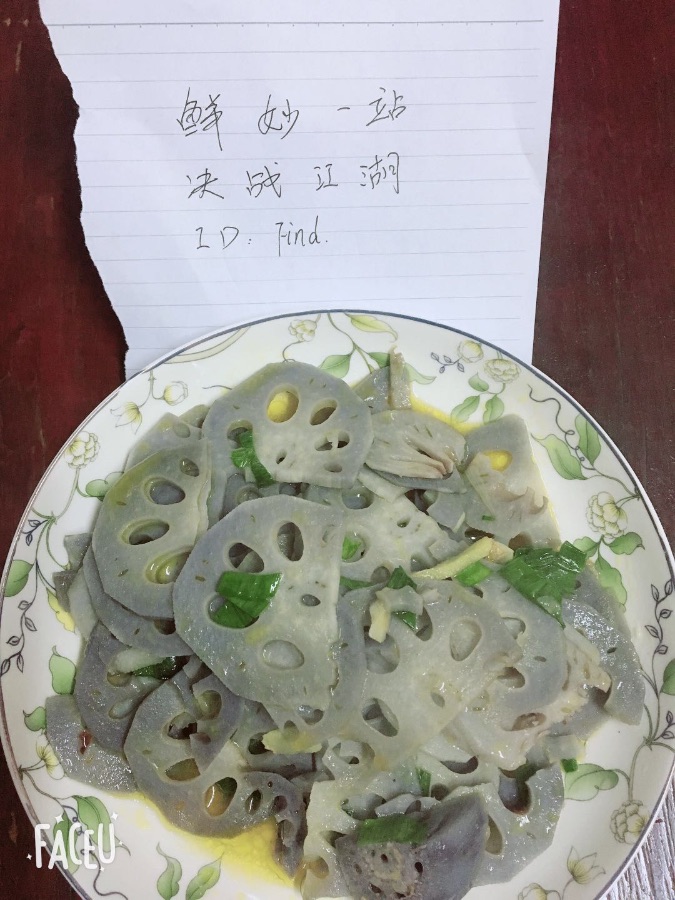 鲜妙一站
决战江湖
ID: Find.
FACEU